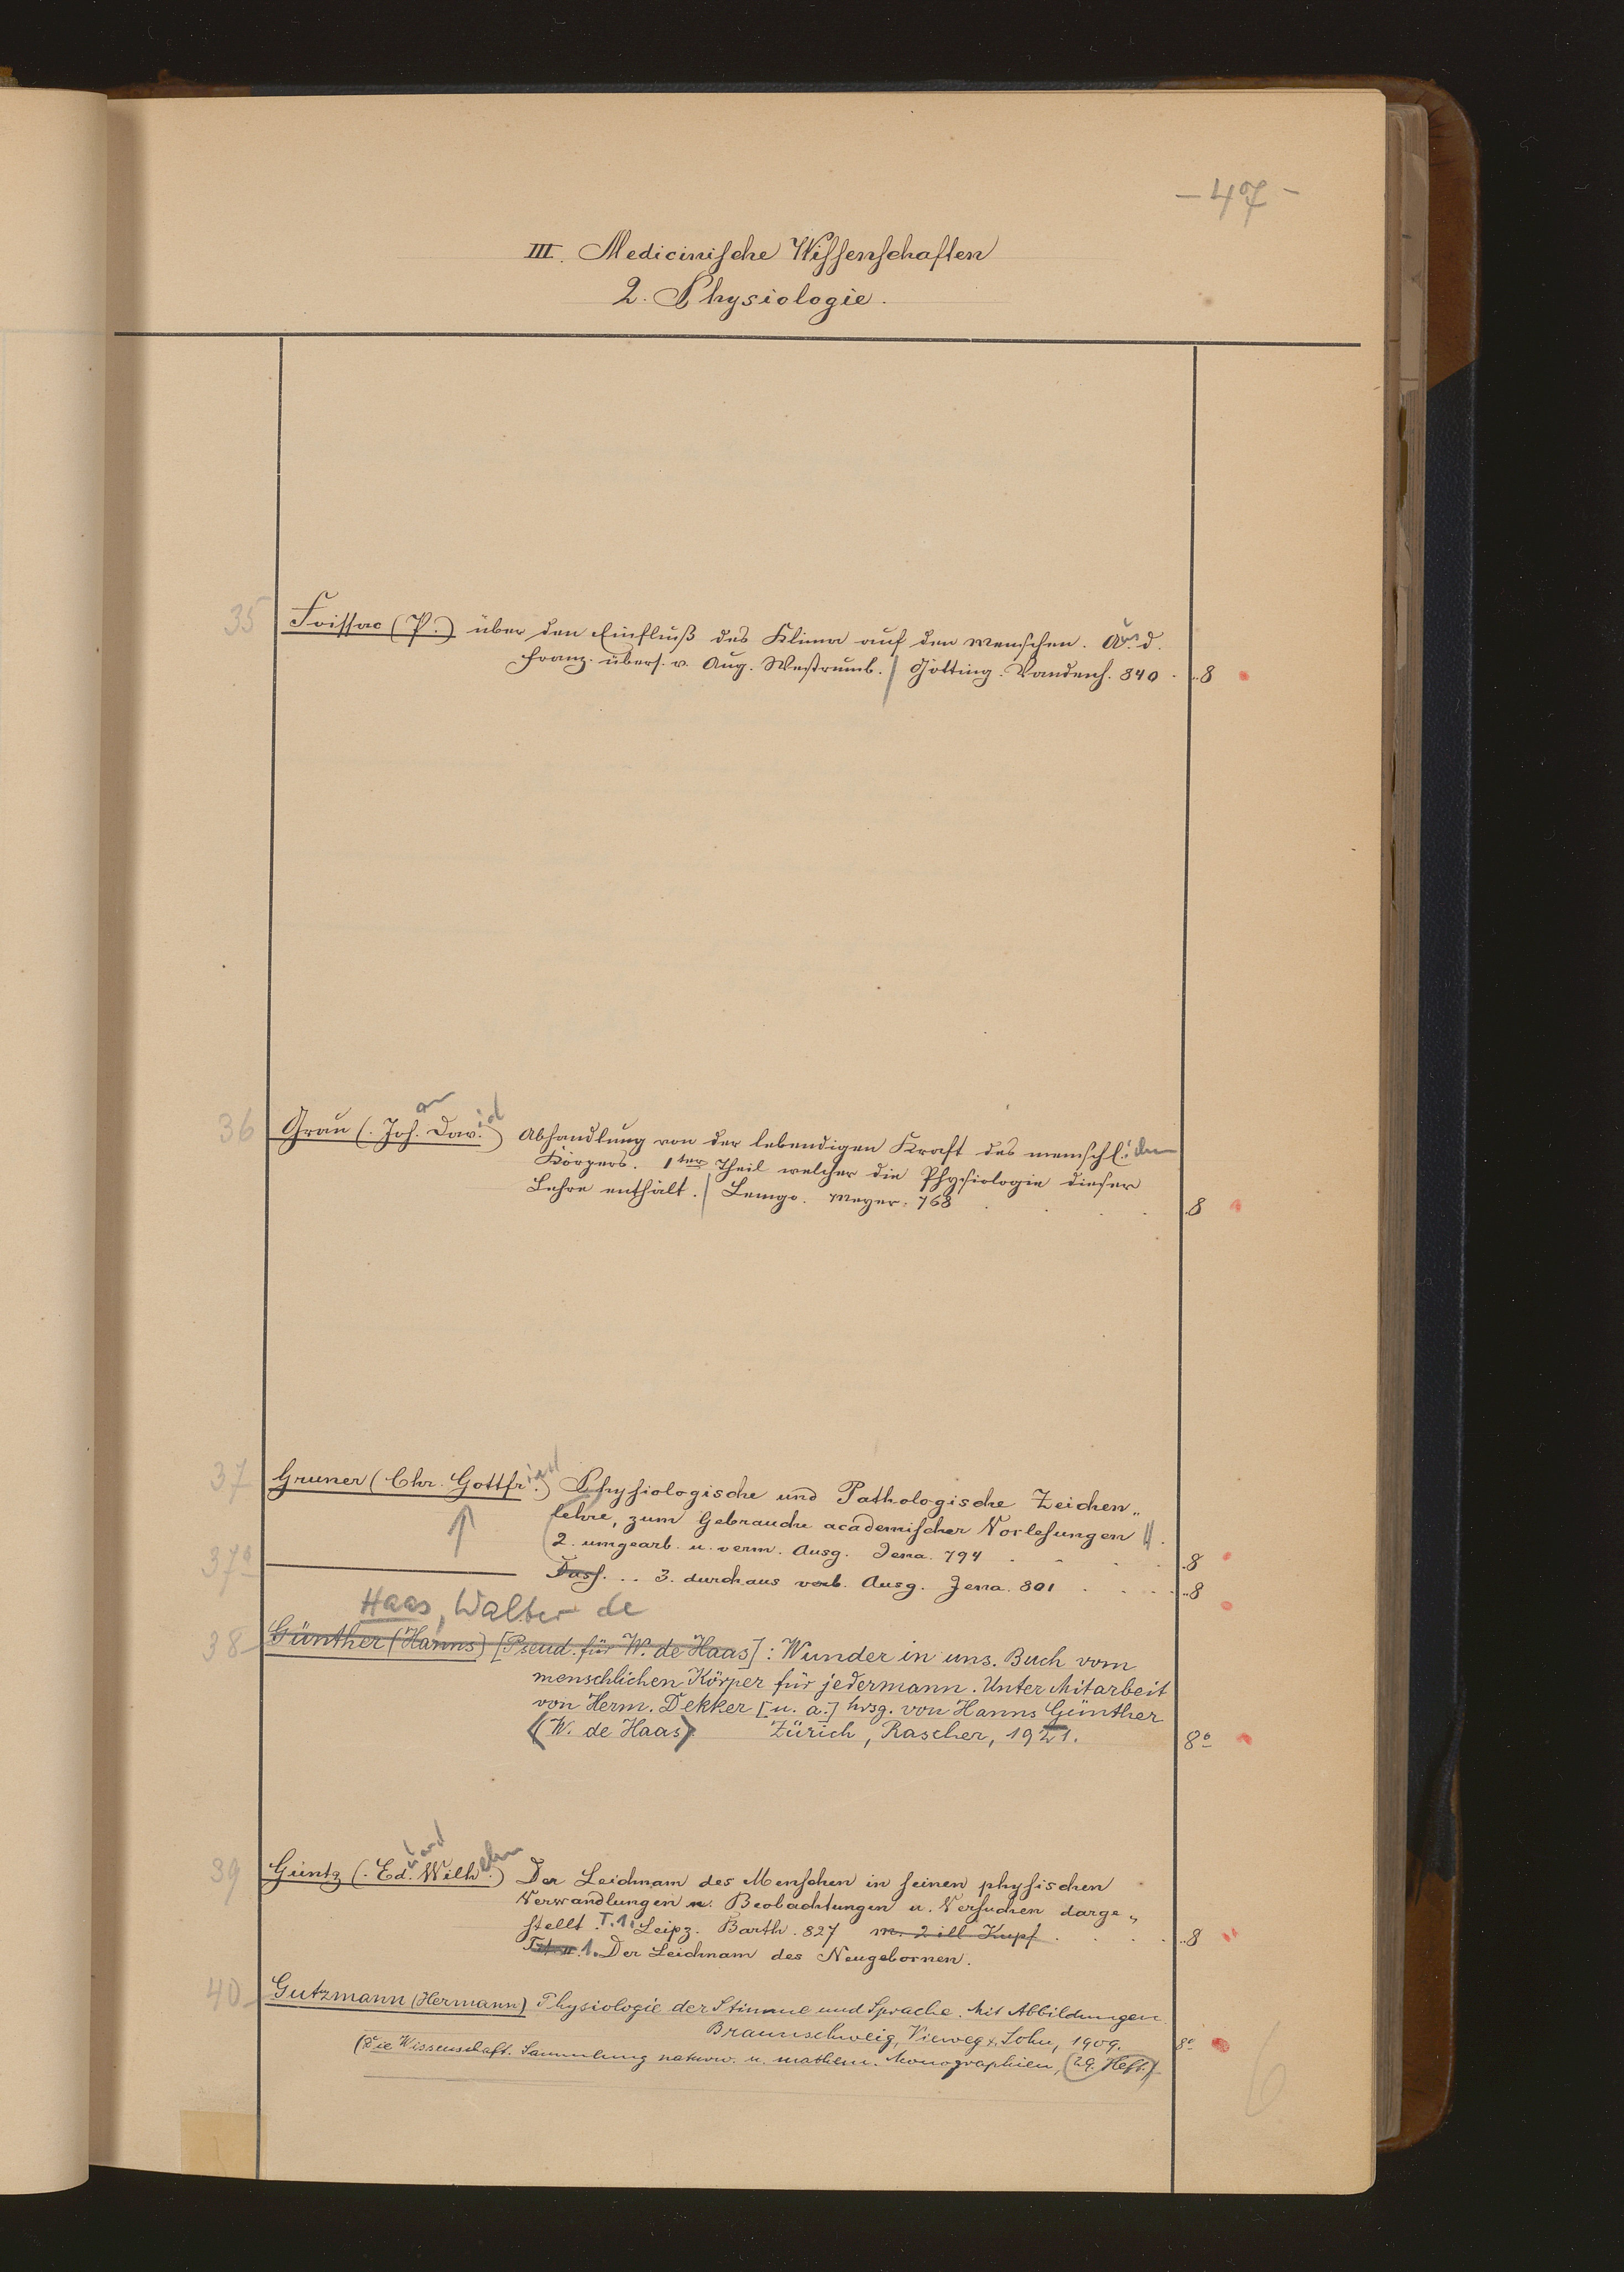 - 47 -
III. Medicinische Wissenschaften
2. Physiologie.
35 Foissac (P.) über den Einfluß des Klima auf den Menschen. Aus d.
Franz. übers. v. Aug. Westrumb. / Götting. Vandenh. 840 . .. 8
36 Grau (. Johan David.) Abhandlung von der lebendigen Kraft des menschlichen
Körpers. 1ter Theil welcher die Physiologie dieser
Lehre enthält. / Lemgo. Meyer. 768 . . . . 8
37 Gruner (Chr. Gottfried.) Physiologische und Pathologische Zeichen„
lehre, zum Gebrauche academischer Vorlesungen //.
(2. umgearb. u. verm. Ausg. Jena. 794 . . . . 8
37a Dass. .. 3. durchaus verb. Ausg. Jena. 801 . . . .. 8
Haas, Walter de
38 Günther (Hanns) [Pseud. für W. de Haas] : Wunder in uns. Buch vom
menschlichen Körper für jedermann. Unter Mitarbeit
von Herm. Dekker [u. a.] hrsg. von Hanns Günther
(W. de Haas) Zürich, Rascher, 1921. 8o
39 Güntz (. Eduard Wilhelm.) Der Leichnam des Menschen in seinen physischen
Verwandlungen n. Beobachtungen u. Versuchen darge„
stellt. T.1. Leipz. Barth. 827 m. 2 ill. Kupf. . . . .. 8
1. Der Leichnam des Neugebornen.
40 Gutzmann (Hermann) Physiologie der Stimme und Sprache. Mit Abbildungen.
Braunschweig, Vieweg & Sohn, 1909. 8o
(Die Wissenschaft. Sammlung naturw. u. mathem. Monographien, (29. Heft.)
6